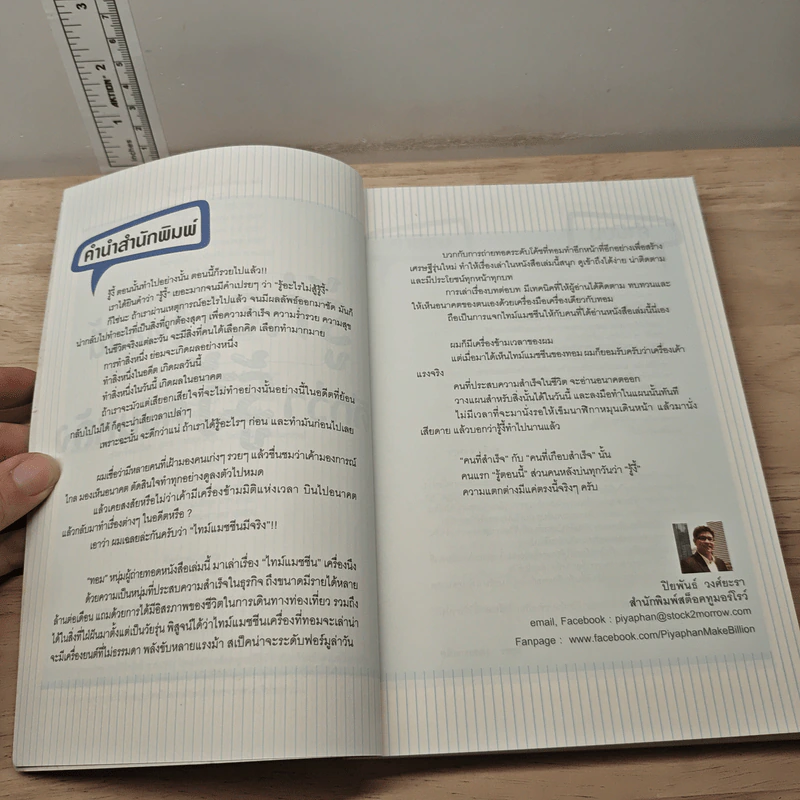 3
7
6
2
5
4
ACTION
1
3
2
1
Inches
คำนำสำนักพิมพ์
รู้งี้ ตอนนั้นทำไปอย่างนั้น ตอนนี้ก็รวยไปแล้ว!!
เราได้ยินคำว่า "รู้งี้" เยอะมากจนมีคำเปรยๆ ว่า "รู้อะไรไม่สู้รู้งี้-
ก็ใช่นะ ถ้าเราผ่านเหตุการณ์อะไรไปแล้ว จนมีผลลัพธ์ออกมาชัด มันก็
น่ากลับไปทำอะไรที่เป็นสิ่งที่ถูกต้องสุดๆ เพื่อความสำเร็จ ความร่ำรวย ความสุข
ในชีวิตจริงแต่ละวัน จะมีสิ่งที่คนได้เลือกคิด เลือกทำมากมาย
การทำสิ่งหนึ่ง ย่อมจะเกิดผลอย่างหนึ่ง
ทำสิ่งหนึ่งในอดีต เกิดผลวันนี้
ทำสิ่งหนึ่งในวันนี้ เกิดผลในอนาคต
ถ้าเราจะมัวแต่เสียอกเสียใจที่จะไม่ทำอย่างนั้นอย่างนี้ในอดีตที่ย้อน
กลับไปไม่ได้ ก็ดูจะน่าเสียเวลาเปล่าๆ
เพราะฉะนั้น จะดีกว่าแน่ ถ้าเราได้รู้อะไรๆ ก่อน และทำมันก่อนไปเลย
ผมเชื่อว่ามีหลายคนที่เฝ้ามองคนเก่งๆ รวยๆ แล้วชื่นชมว่าเค้ามองการณ์
ไกล มองเห็นอนาคต ตัดสินใจทำทุกอย่างดูลงตัวไปหมด
แล้วเคยสงสัยหรือไม่ว่าเค้ามีเครื่องข้ามมิติแห่งเวลา บินไปอนาคต
แล้วกลับมาทำเรื่องต่างๆ ในอดีตหรือ ?
เอาว่า ผมเฉลยละกันครับว่า "ไทม์แมชชีนมีจริง"!!
"ทอม" หนุ่มผู้ถ่ายทอดหนังสือเล่มนี้ มาเล่าเรื่อง "ไทม์แมชชีน" เครื่องนึง
ด้วยความเป็นหนุ่มที่ประสบความสำเร็จในธุรกิจ ถึงขนาดมีรายได้หลาย
ล้านต่อเดือน แถมด้วยการได้มีอิสรภาพของชีวิตในการเดินทางท่องเที่ยว รวมถึง
ได้ในสิ่งที่ใฝ่ฝันมาตั้งแต่เป็นวัยรุ่น พิสูจน์ได้ว่าไทม์แมชชีนเครื่องที่ทอมจะเล่าน่า
จะมีเครื่องยนต์ที่ไม่ธรรมดา พลังขับหลายแรงม้า สเป็คน่าจะระดับฟอร์มูล่าวัน
บวกกับการถ่ายทอดระดับโค้ชที่ทอมทำอีกหน้าที่อีกอย่างเพื่อสร้าง
เศรษฐีรุ่นใหม่ ทำให้เรื่องเล่าในหนังสือเล่มนี้สนุก ดูเข้าถึงได้ง่าย น่าติดตาม
และมีประโยชน์ทุกหน้าทุกบท
การเล่าเรื่องบทต่อบท มีเทคนิคที่ให้ผู้อ่านได้คิดตาม ทบทวนและ
ให้เห็นอนาคตของตนเองด้วยเครื่องมือเครื่องเดียวกับทอม
ถือเป็นการแจกไทม์แมชชีนให้กับคนที่ได้อ่านหนังสือเล่มนี้นี่เอง
ผมก็มีเครื่องข้ามเวลาของผม
แต่เมื่อมาได้เห็นไทม์แมชชีนของทอม ผมก็ยอมรับครับว่าเครื่องเค้า
แรงจริง
คนที่ประสบความสำเร็จในชีวิต จะอ่านอนาคตออก
วางแผนสำหรับสิ่งนั้นได้ในวันนี้ และลงมือทำในแผนนั้นทันที
ไม่มีเวลาที่จะมานั่งรอให้เข็มนาฬิกาหมุนเดินหน้า แล้วมานั่ง
เสียดาย แล้วบอกว่ารู้งี้ทำไปนานแล้ว
"คนที่สำเร็จ" กับ "คนที่เกือบสำเร็จ" นั้น
คนแรก "รู้ตอนนี้" ส่วนคนหลังบ่นทุกวันว่า "รู้งี้"
ความแตกต่างมีแค่ตรงนี้จริงๆ ครับ
ปิยพันธ์ วงศ์ยะรา
สำนักพิมพ์สต็อคทูมอร์โรว์
email, Facebook : piyaphan@stock2morrow.com
Fanpage : www.facebook.com/PiyaphanMakeBillion